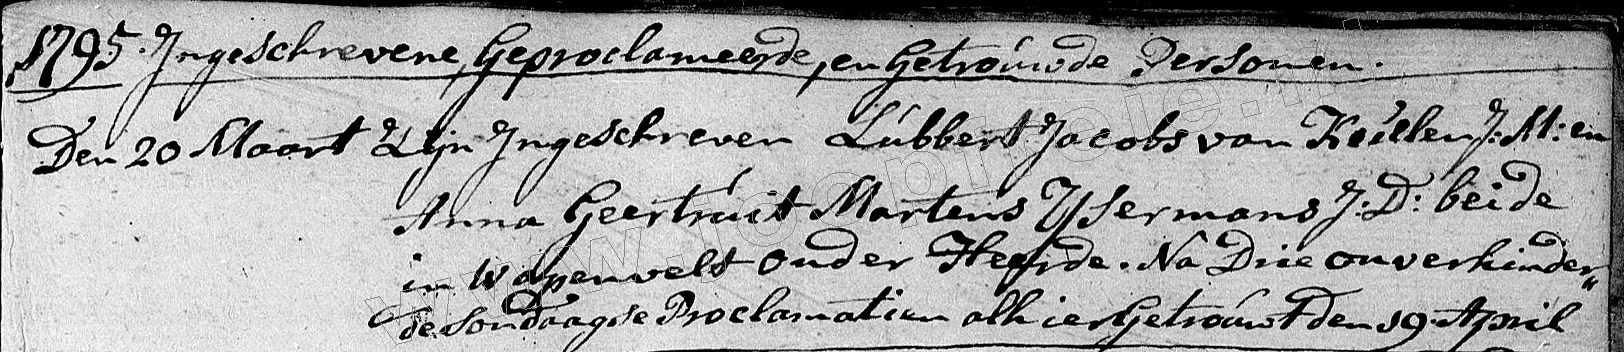 1795. Ingeschrevene, Geproclameerde, en Getroúwde Personen.
Den 20 Maart Zijn Ingeschreven Lúbbert Jacobs van Keúlen J: M: en
Anna Geertrúit Martens IJsermans J: D: beide
in Wapenvelt onder Heerde. Na Drie onverhinder„
de Sondaagse Proclamatien alhier Getroúwt den 19 April